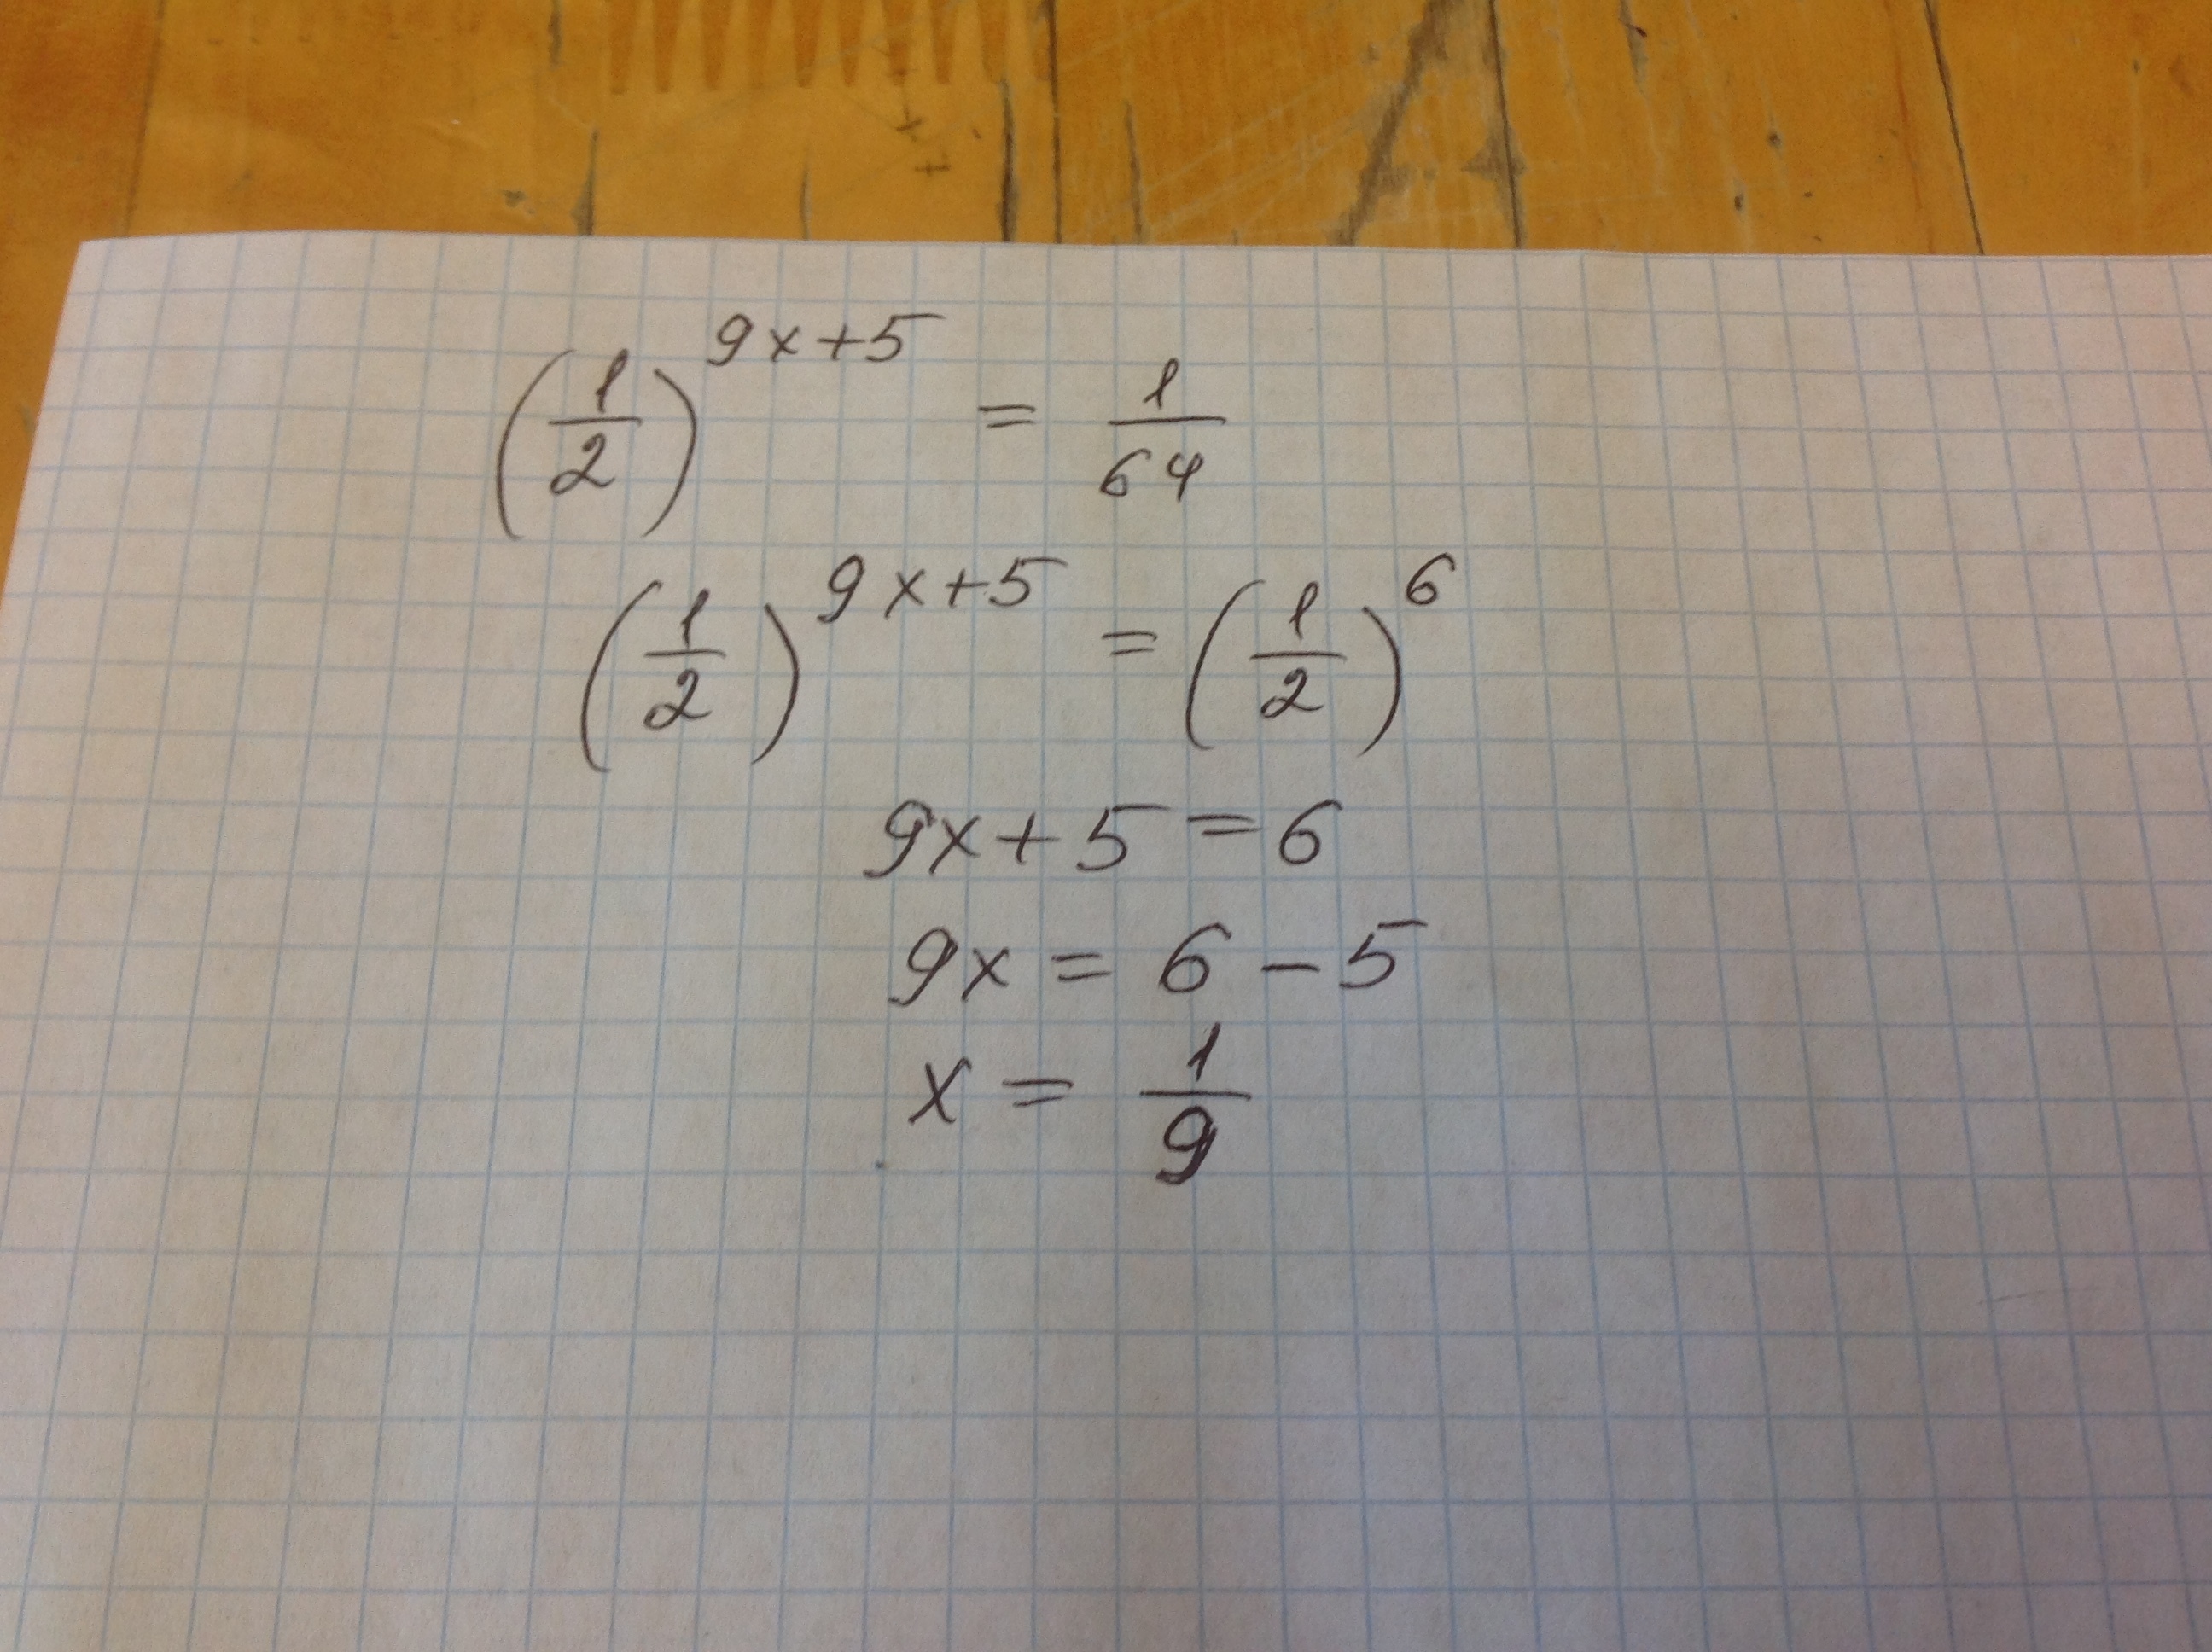 (1/2)^(9x+5) = 1/64
(1/2)^(9x+5) = (1/2)^6
9x+5=6
9x = 6 - 5
x = 1/9